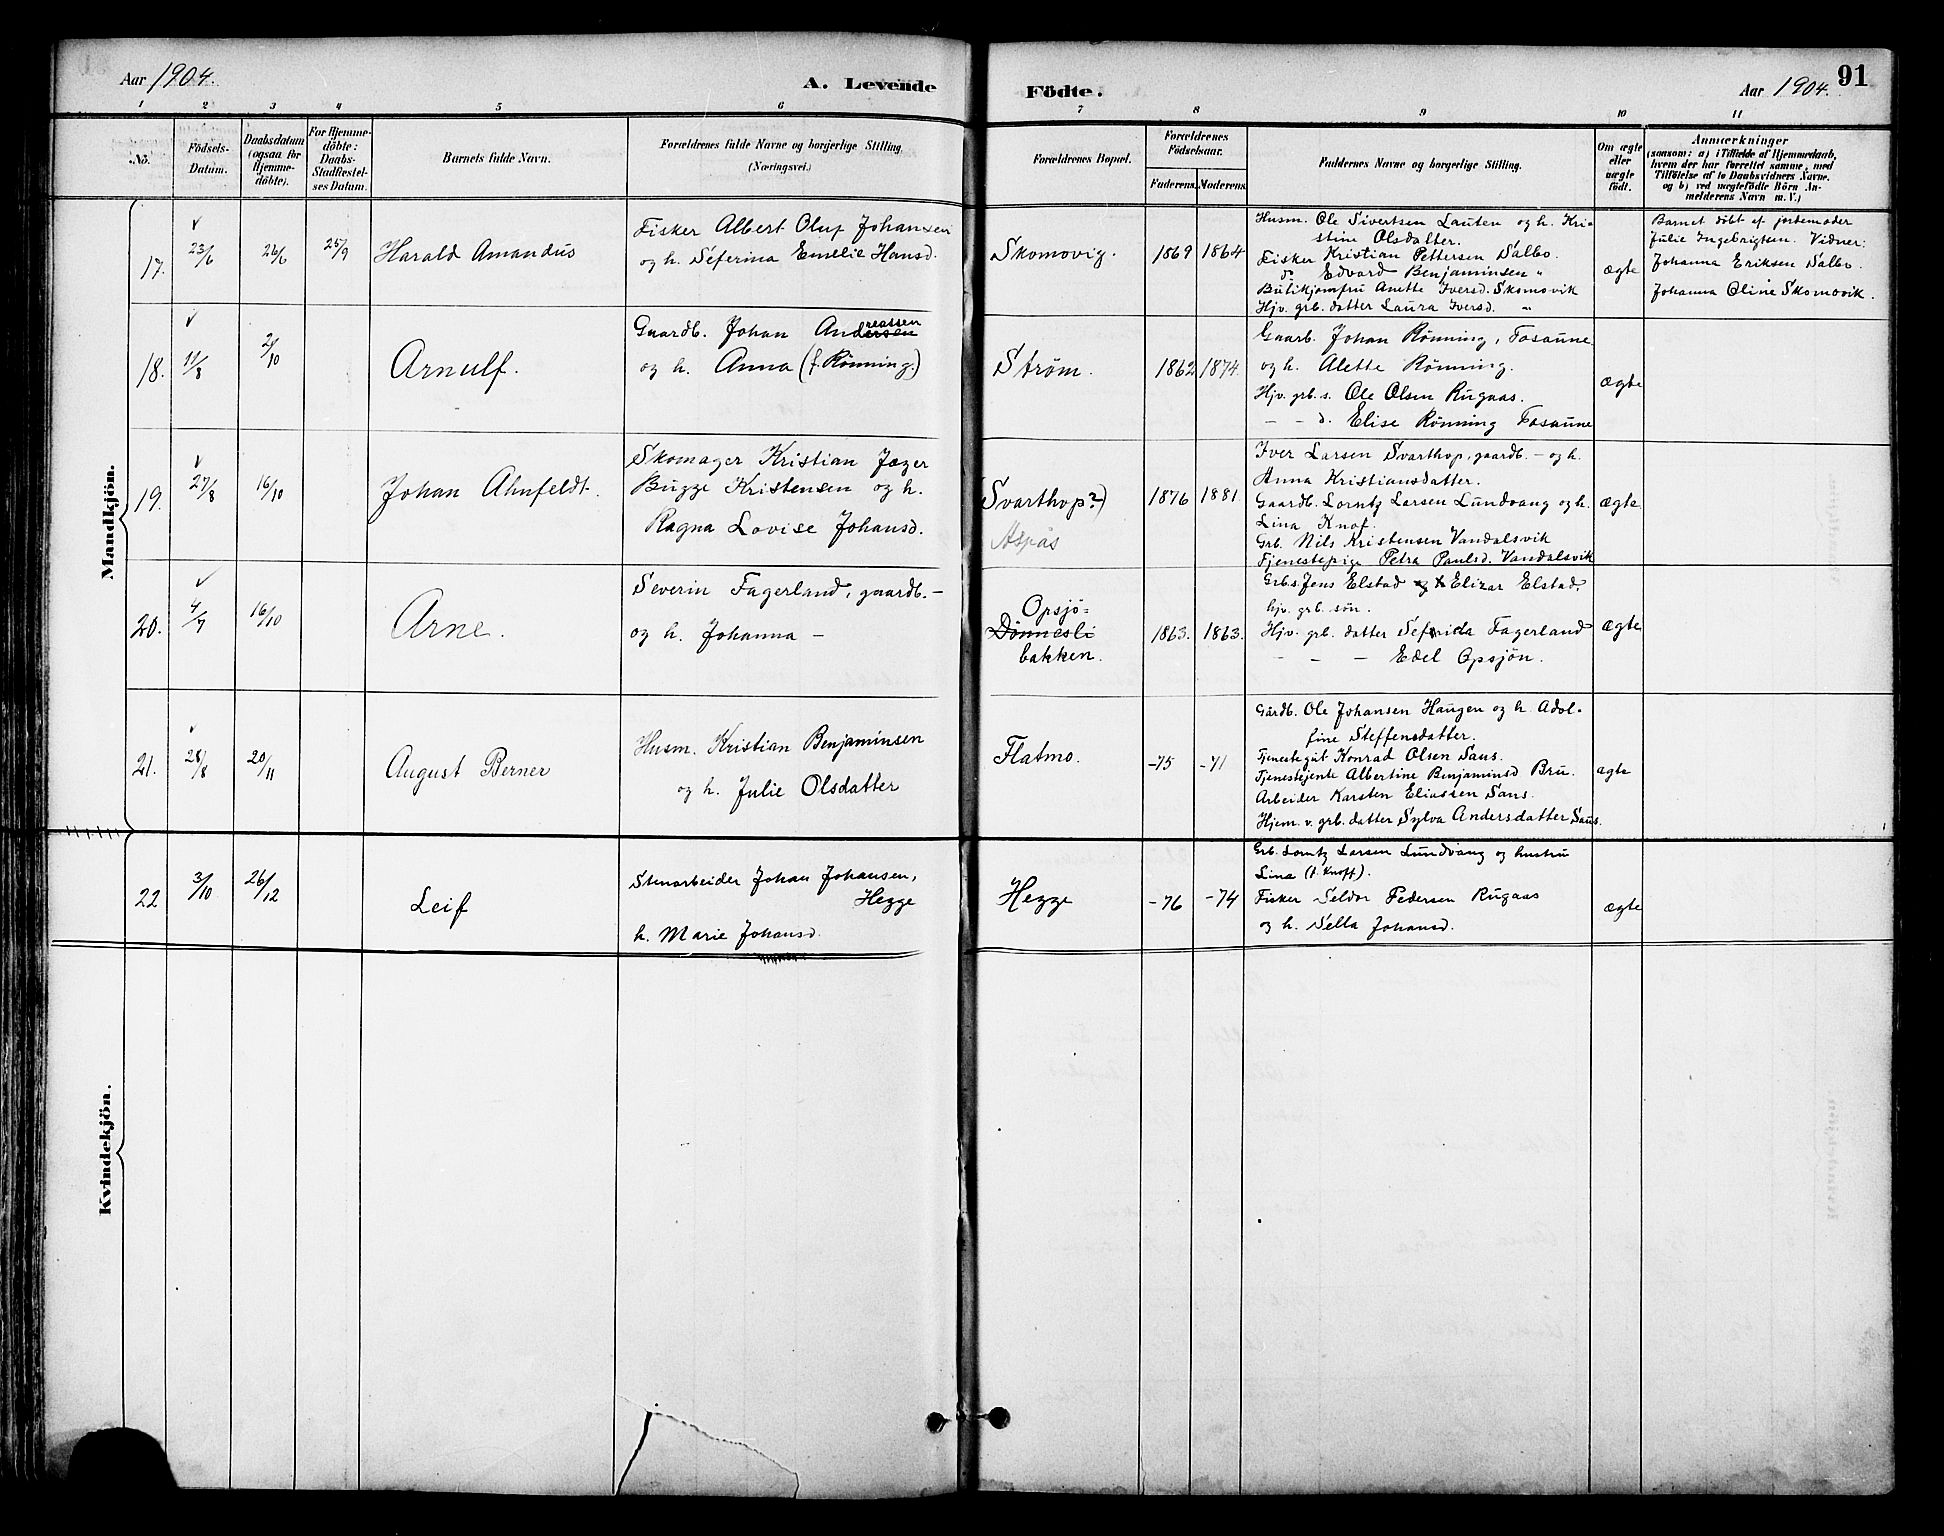 Aar 1904.
A. Levende
Födte.
Aar 1904.
91
1 2 3 4 5 6 7 8 9 10 11
No.
Födsels-
Datum.
Daabsdatum
(ogsaa for
Hjemme-
döbte).
For Hjemme-
döbte:
Daabs-
Stadfæstel-
ses Datum.
Barnets fulde Navn.
Forældrenes fulde Navne og borgerlige Stilling
(Næringsvei.)
Forældrenes Bopæl.
Forældrenes
Födselsaar.
Faderens. Moderens.
Faddernes Navne og borgerlige Stilling.
Om ægte
eller
uægte
födt.
Anmærkninger
(saasom: a) i Tilfælde af Hjemmedaab,
hvem der har forrettet samme, med
Tilföielse af to Daabsvidners Navne.
og b) ved uægtefödte Börn An-
melderens Navn m. V.)
Mandkjön.
17.
23/6
26/6
25/9
Harald Amandus
Fisker Albert Oluf Johansen
og h. Seferina Emelie Hansd.
Skomovig.
1869 1864
Husm. Ole Sivertsen Lauten og h. Kri-
stine Olsdatter.
Fisker Kristian Pettersen Salbo.
do Edvard Benjaminsen "
Butikjomfru Anette Iversd. Skomovik
Hjv. grb. datter Laura Iversd. "
ægte
Barnet döbt af jordemoder
Julie Ingebrigtsen. Vidner:
Johanna Eriksen Salbo.
Johanna Oline Skomovik.
18.
11/8
2/10
Arnulf.
Gaardb. Johan Andersen
reassen
og h. Anna (f. Rönning.)
Ström.
1862 1874.
Gaarb. Johan Rönning, Tosaune
og h. Alette Rönning.
Hjv. grb. s. Ole Olsen Rugaas.
– – d. Elise Rönning Tosaune
ægte
19.
27/8
16/10
Johan Ahnfeldt.
Skomager Kristian Jæger
Bugge Kristensen og h.
Ragna Lovise Johansd.
Svarthop?)
Aspås
1876 1881
Iver Larsen Svarthop, gaardb. – og h.
Anna Kristiansdatter.
Gaardb. Lorntz Larsen Lundvang og h.
Lina Knof.
Grb. Nils Kristensen Vandalsvik
Tjenestepige Petra Paulsd. Vandalsvik
ægte.
20.
4/7
16/10
Arne.
Severin Fagerland, gaardb. –
og h. Johanna –
Opsjö-
Dönnesli
bakken.
1863. 1863.
Grb.s. Jens Elstad og Elizar Elstad,
hjv. grb. sön.
Hjv. grb. datter Sefrida Fagerland
– – – Edel Opsjön.
ægte
21.
28/8
20/11
August Berner
Husm. Kristian Benjaminsen
og h. Julie Olsdatter
Flatmo.
–75 –71
Gårdb. Ole Johansen Haugen og h. Adol-
fine Steffensdatter.
Tjenestegut Konrad Olsen Saus.
Tjenestejente Albertine Benjaminsd Bru.
Arbeider Karsten Eliassen Saus.
Hjem. v. grb. datter Sylva Andersdatter Saus.
ægte
22
3/10
26/12
Leif
Stenarbeider Johan Johansen,
Hegge
h. Marie Johansd.
Hegge
–76 –74
Grb. Lorntz Larsen Lundvang og hustru
Lina (f. Knoff).
Fisker Seldor Pedersen Rugaas
og h. Sella Johansd.
ægte
Kvindekjön.